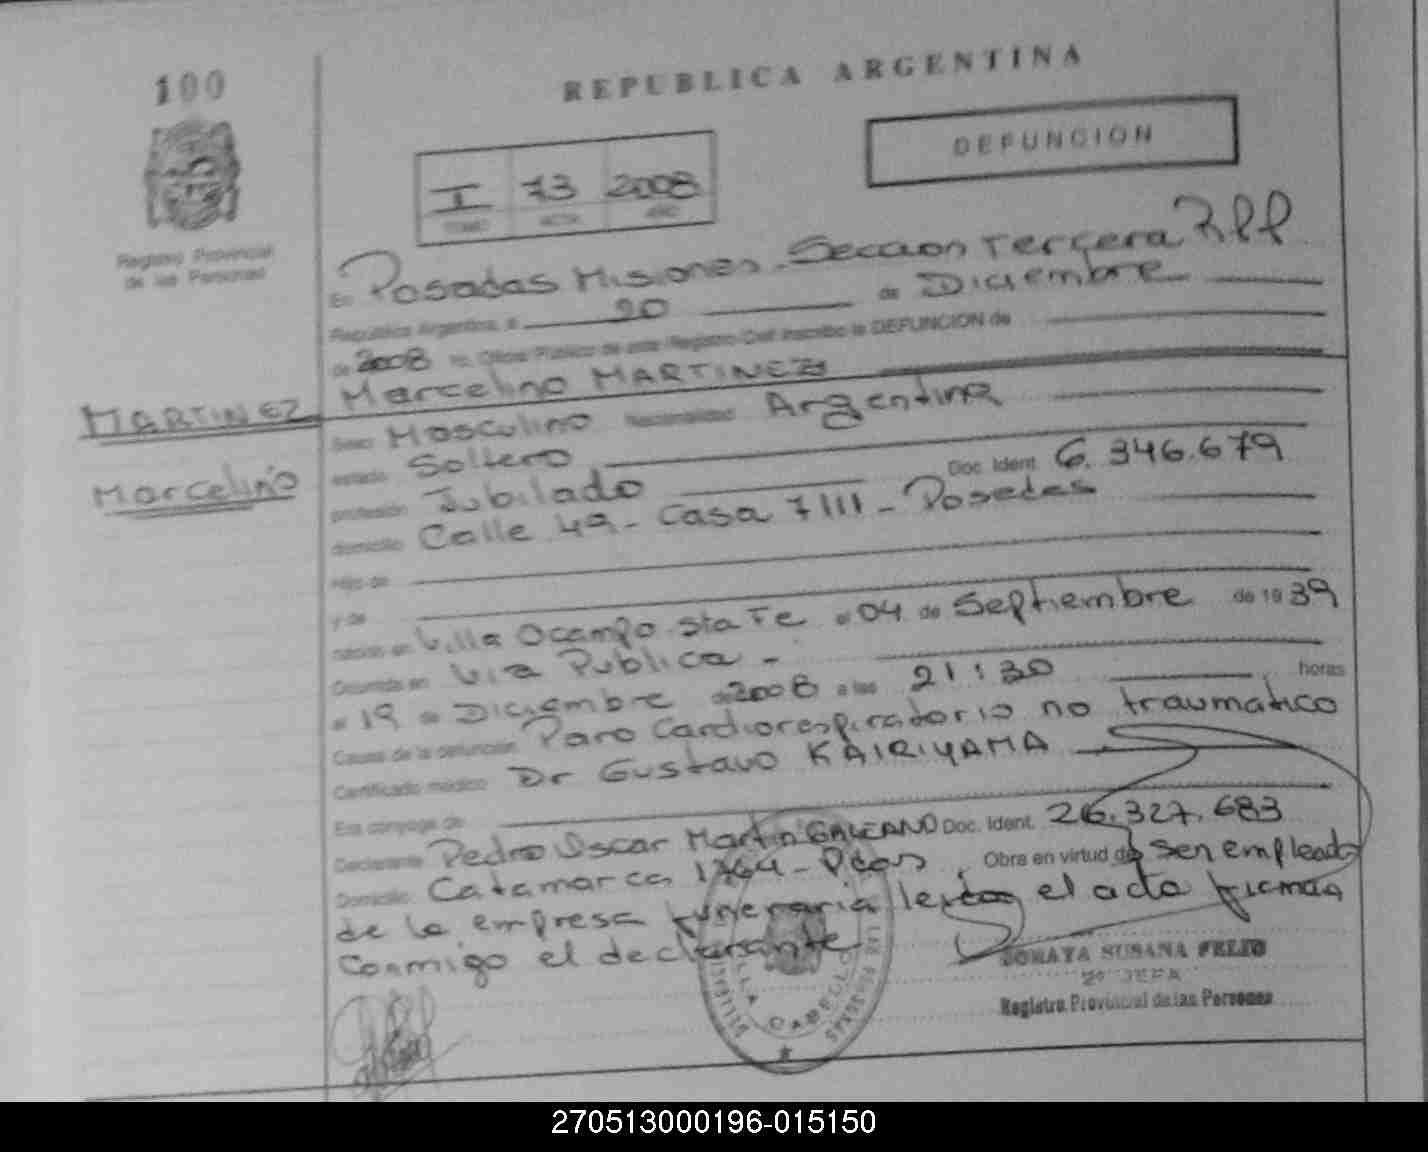 100
REPUBLICA ARGENTINA
DEFUNCION
I 73 2008
TOMO ACTA AÑO
Registro Provincial
de las Personas
En Posadas Misiones. Seccion Tercera
República Argentina, a 20 de Diciembre
de 2008 Yo, Oficial Público de este Registro Civil inscribo la DEFUNCION de
Marcelino MARTINEZ
MARTINEZ
Marcelino
Sexo Masculino Nacionalidad Argentina
estado Soltero
profesión Jubilado Doc. Ident. 6.346.679
domicilio Calle 49 - Casa 7111 - Posadas
Hijo de
y de
nacido en Villa Ocampo. Sta Fe el 04 de Septiembre de 19 39
Ocurrida en Via Publica -
el 19 de Diciembre de 2008 a las 21:30 horas
Causa de la defunción Paro Cardiorespiratorio no traumatico
Certificado médico Dr Gustavo KAIRIYAMA
Era cónyuge de
Declarante Pedro Oscar Martin GALEANO Doc. Ident. 26.327.683
Domicilio Catamarca 1764 - Pdas. Obra en virtud de ser empleado
de la empresa funeraria leida el acta firman
conmigo el declarante
SORAYA SUSANA FELIO
2º JEFA
Registro Provincial de las Personas
VILLA CABELLO
270513000196-015150